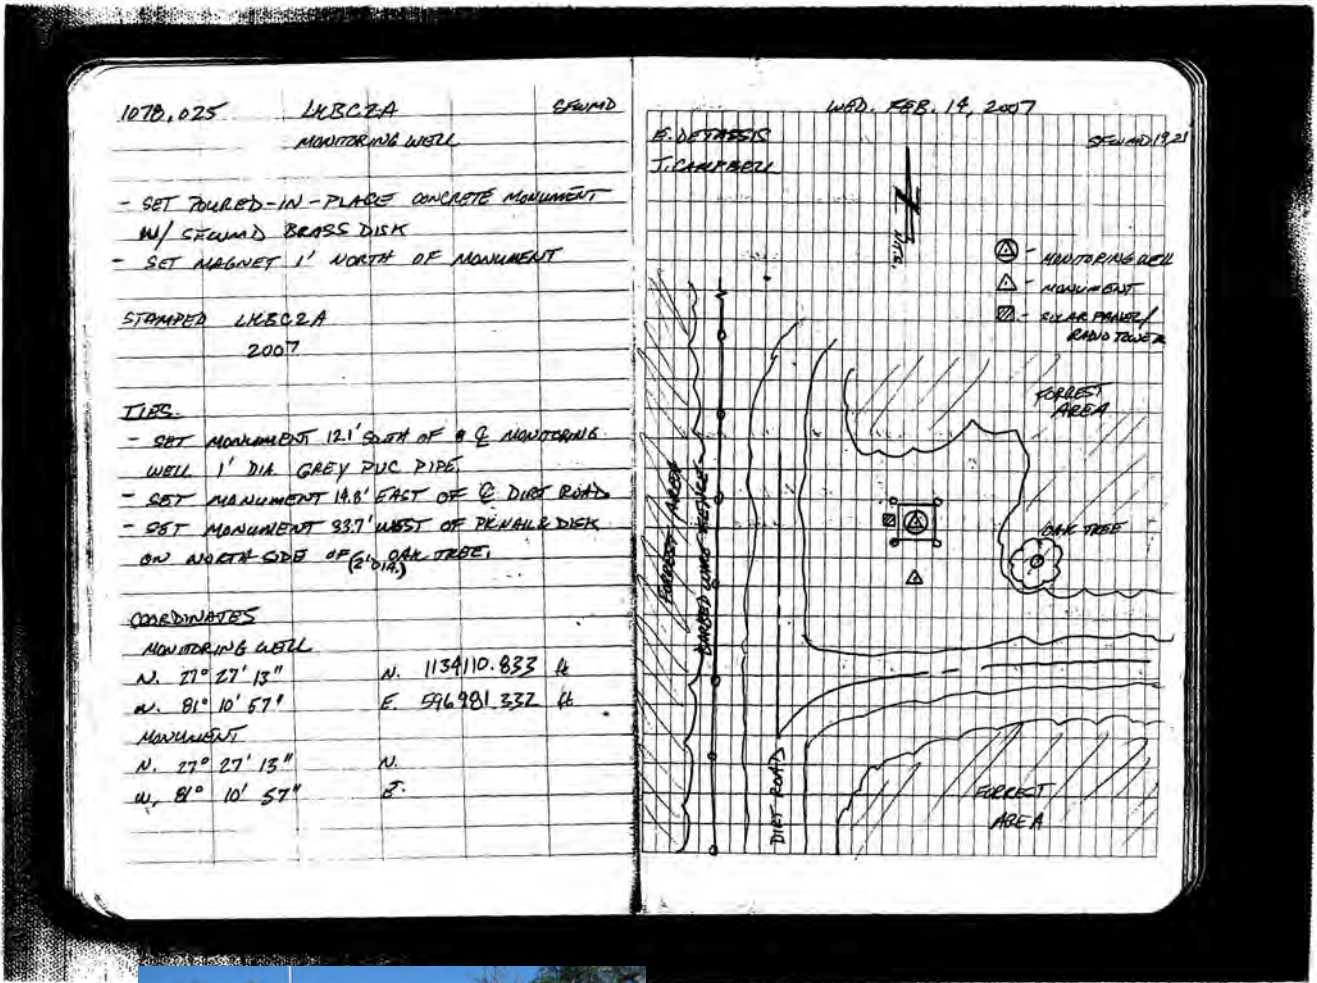 1078.025 LKBCZA SFWMD
MONITORING WELL
- SET POURED-IN-PLACE CONCRETE MONUMENT
W/ SFWMD BRASS DISK
- SET MAGNET 1' NORTH OF MONUMENT
STAMPED LKBCZA
2007
TIES
- SET MONUMENT 12.1' SOUTH OF ℄ MONITORING
WELL 1' DIA. GREY PVC PIPE.
- SET MONUMENT 14.8' EAST OF ℄ DIRT ROAD
- SET MONUMENT 33.7' WEST OF PK NAIL & DISK
ON NORTH SIDE OF (2' DIA.) OAK TREE.
COORDINATES
MONITORING WELL
N. 27° 27' 13" N. 1134110.833 ft
W. 81° 10' 57" E. 596981.332 ft
MONUMENT
N. 27° 27' 13" N.
W. 81° 10' 57" E.
WED. FEB. 14, 2007
E. DETASSIS
SFWMD 19, 21
J. CAMPBELL
N.T.S.
- MONITORING WELL
- MONUMENT
- SOLAR PANEL/
RADIO TOWER
FORREST
AREA
FORREST AREA
BARBED WIRE FENCE
OAK TREE
DIRT ROAD
FORREST
AREA